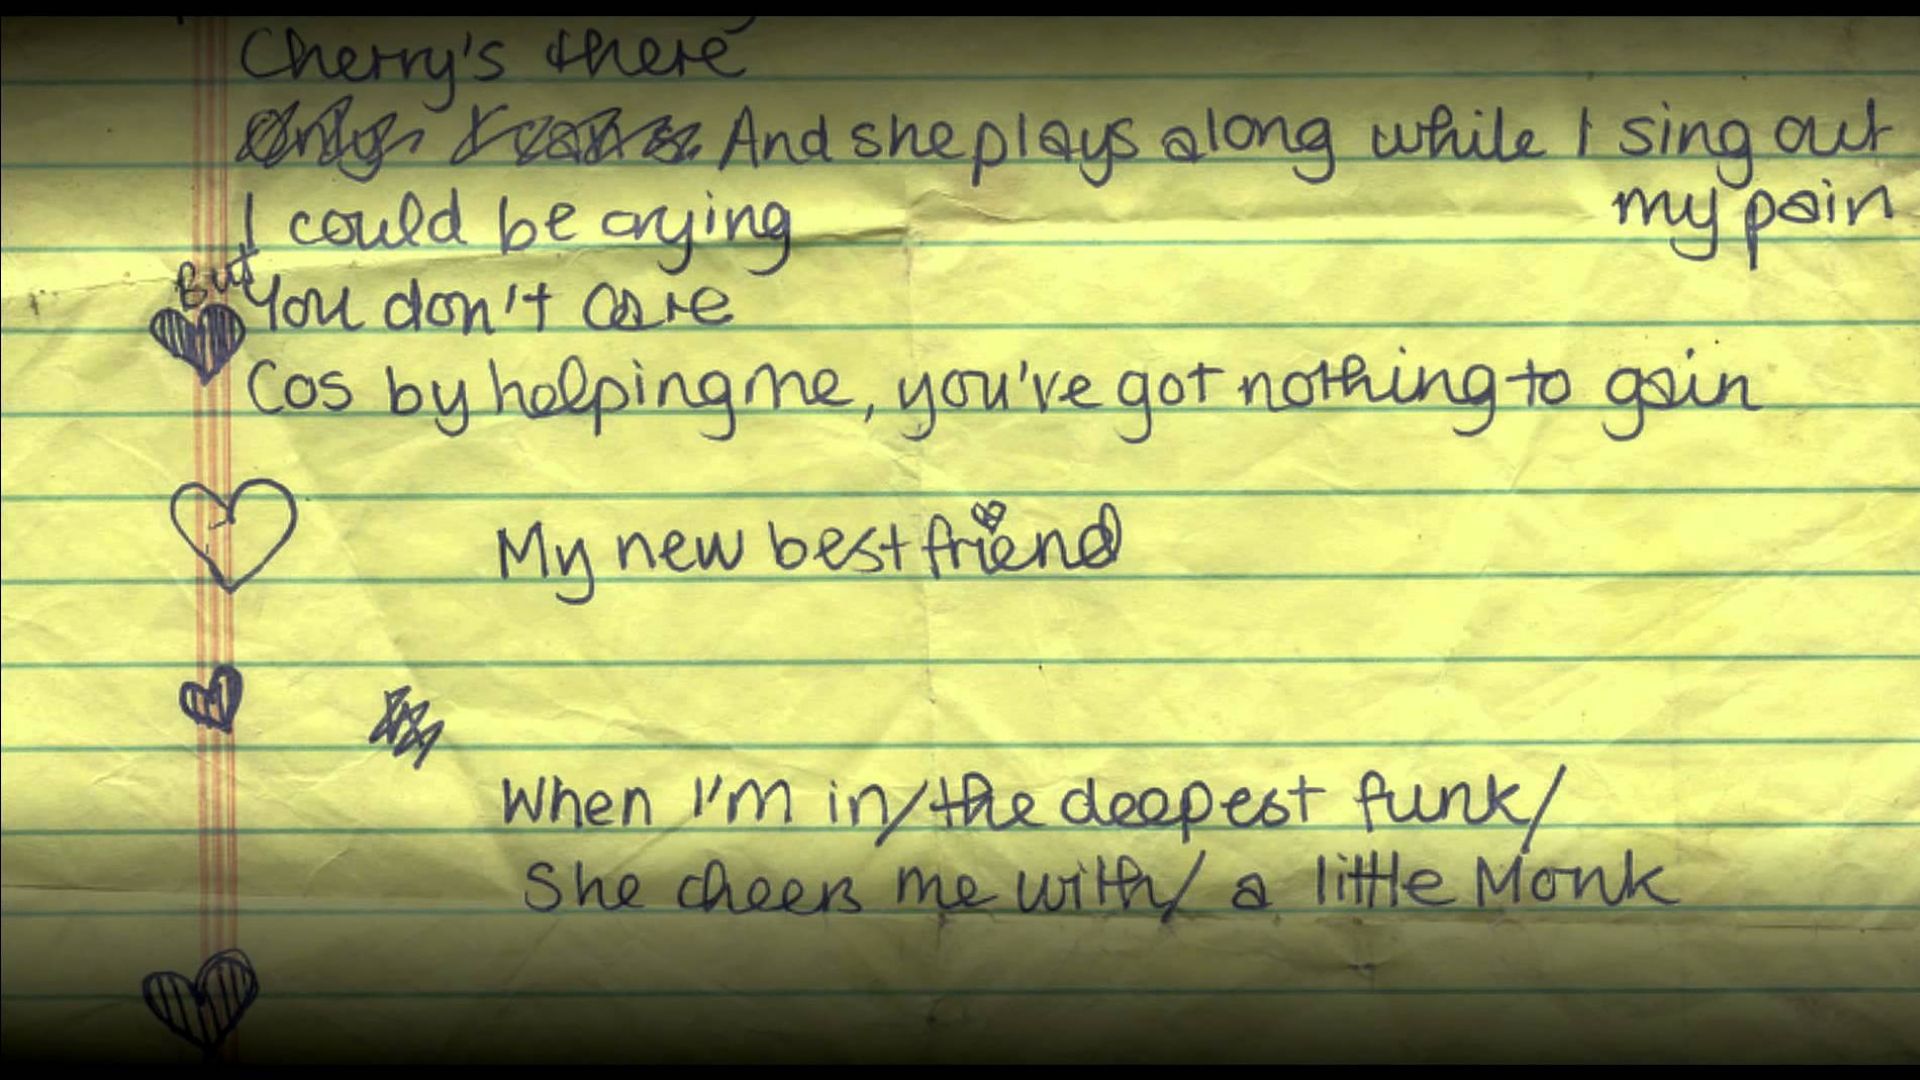 Cherry's there
And she plays along while I sing out
my pain
I could be crying
But
You don't care
Cos by helping me, you've got nothing to gain
My new best friend
When I'm in/the deepest funk/
She cheers me with/ a little Monk